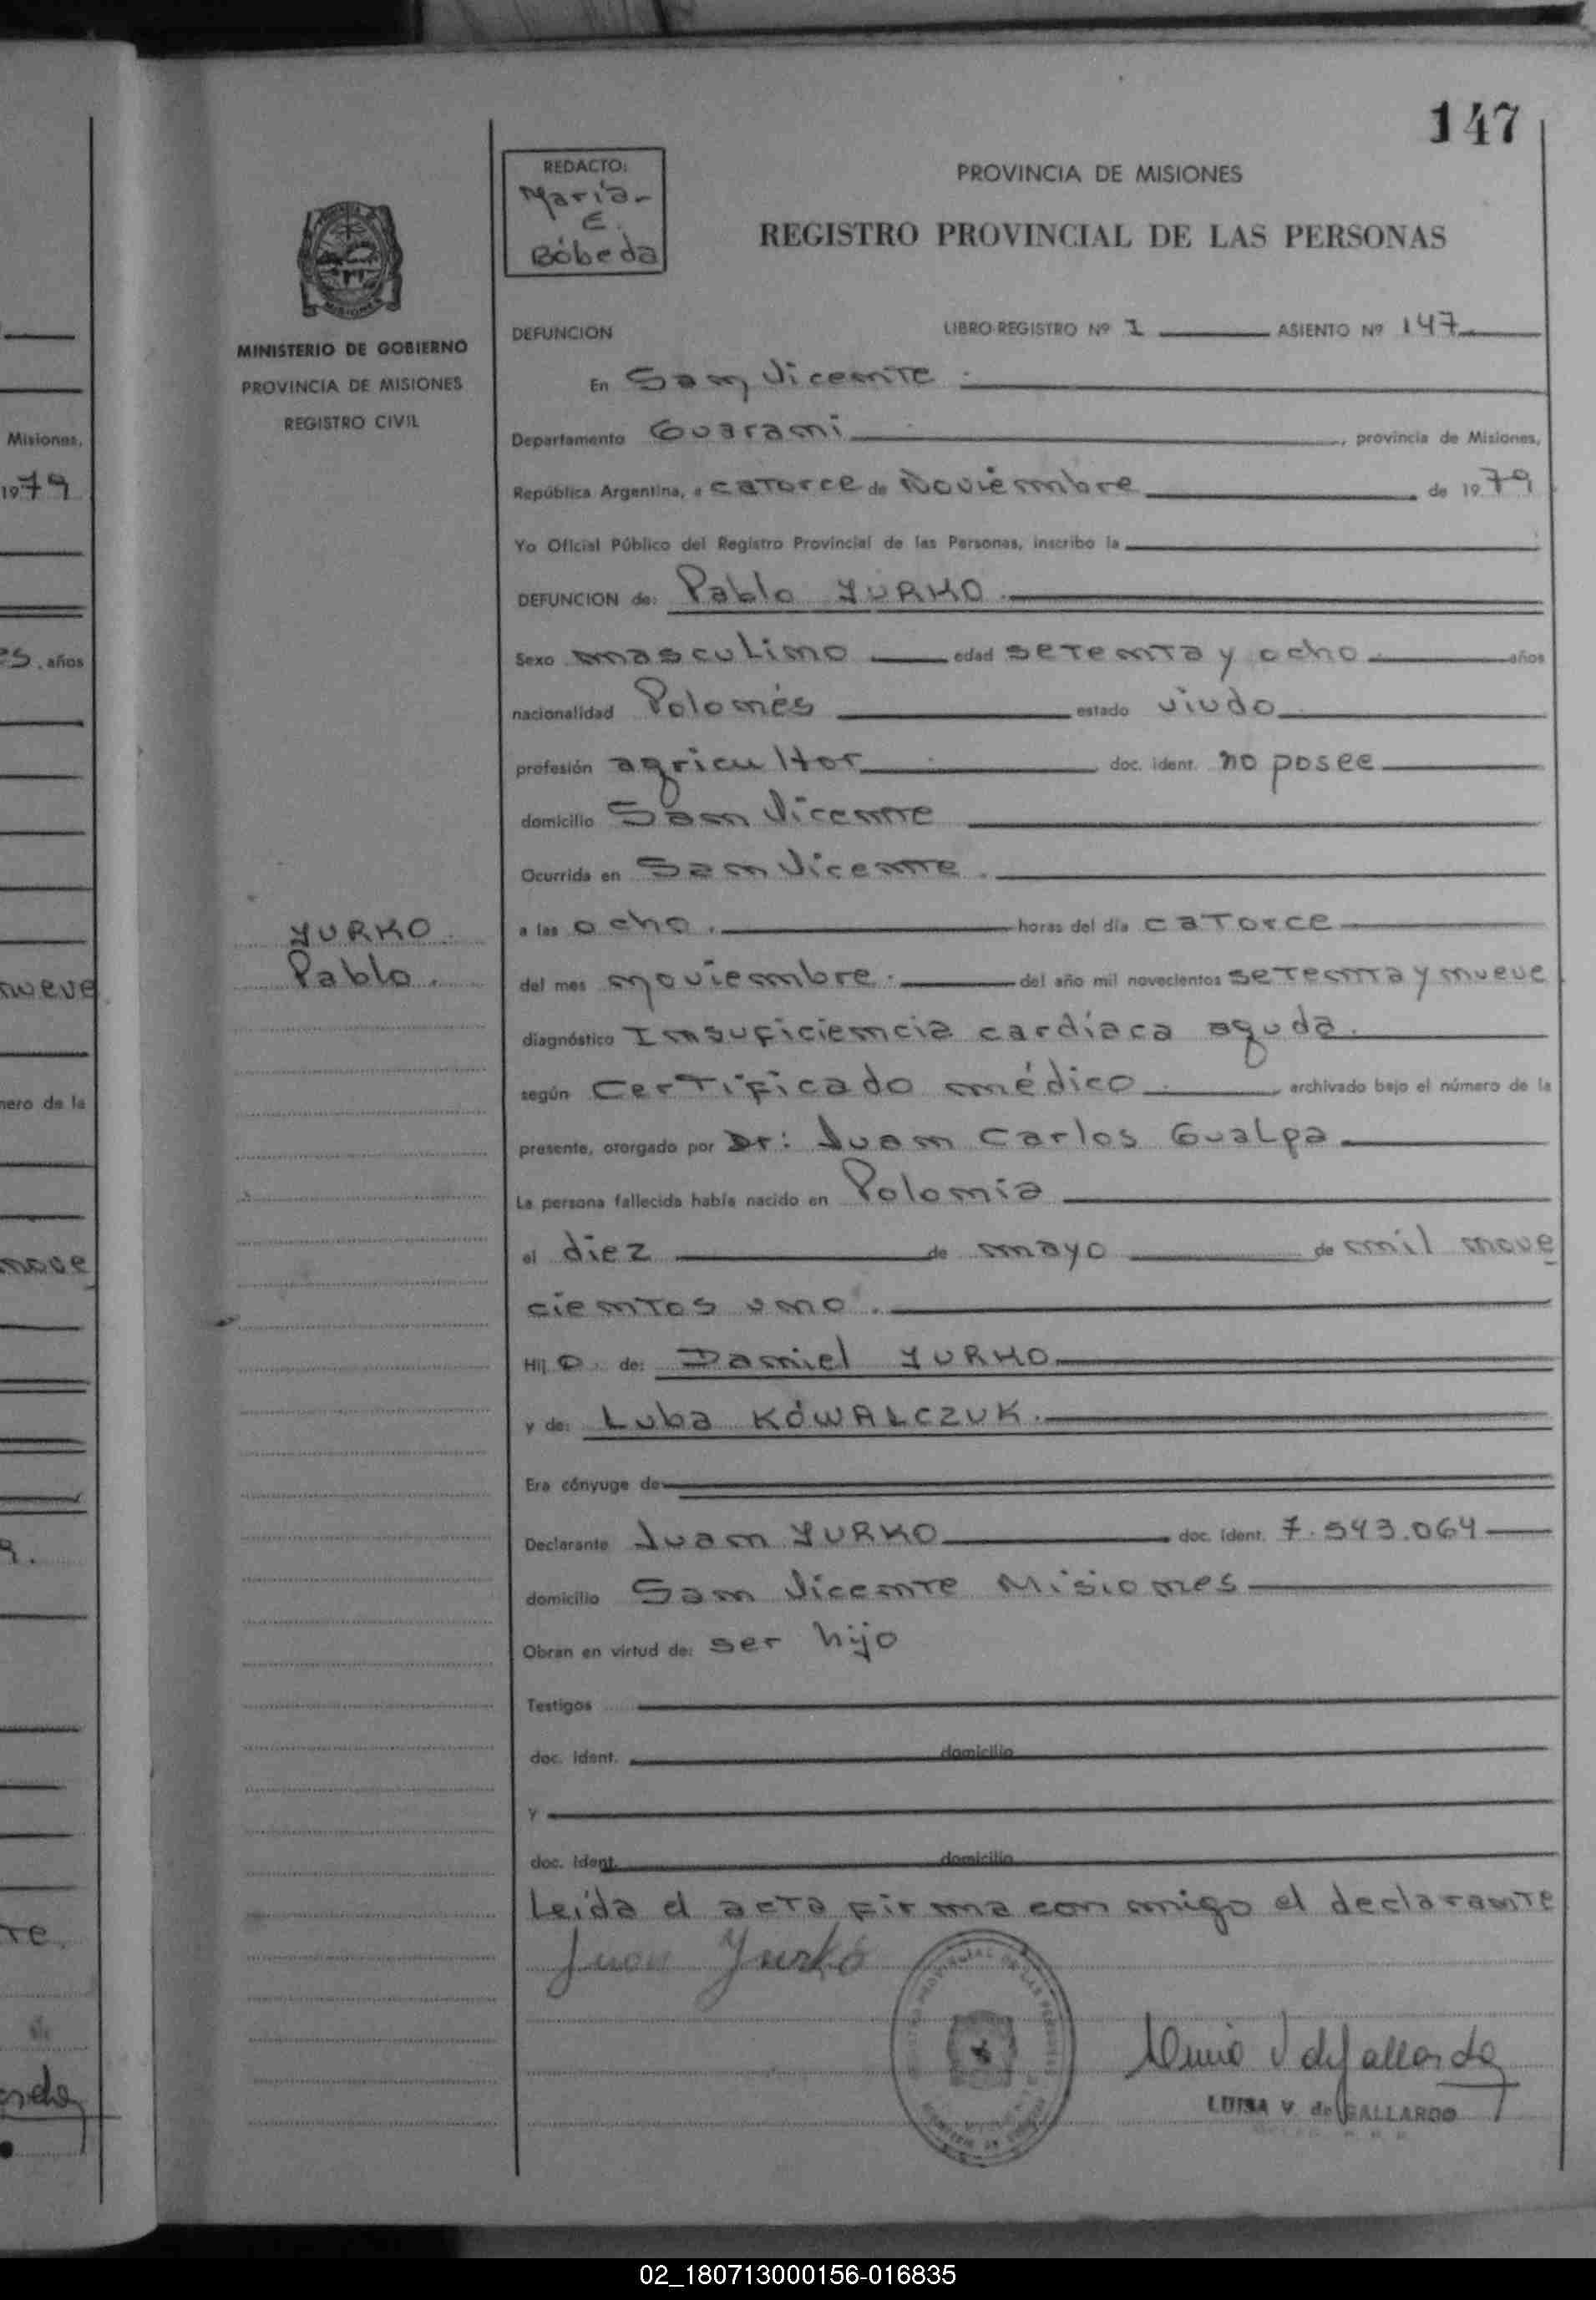 147
REDACTO:
María
E.
Bóbeda
PROVINCIA DE MISIONES
REGISTRO PROVINCIAL DE LAS PERSONAS
MINISTERIO DE GOBIERNO
PROVINCIA DE MISIONES
REGISTRO CIVIL
DEFUNCION LIBRO-REGISTRO Nº 1 ASIENTO Nº 147
En San Vicente
Departamento Guarani, provincia de Misiones,
República Argentina, a catorce de Noviembre de 1979
Yo Oficial Público del Registro Provincial de las Personas, inscribo la
DEFUNCION de: Pablo YURKO
Sexo masculino edad setenta y ocho años
nacionalidad Polonés estado viudo
profesión agricultor doc. ident. no posee
domicilio San Vicente
Ocurrida en San Vicente.
YURKO
Pablo.
a las ocho. horas del día catorce
del mes noviembre. del año mil novecientos setenta y nueve
diagnóstico Insuficiencia cardíaca aguda.
según Certificado médico archivado bajo el número de la
presente, otorgado por Dr: Juan Carlos Gualpa
La persona fallecida había nacido en Polonia
el diez de mayo de mil nove
cientos uno.
Hij o. de: Daniel YURKO
y de: Luba KÓWALCZUK.
Era cónyuge de
Declarante Juan YURKO doc. ident. 7.543.064
domicilio San Vicente Misiones
Obran en virtud de: ser hijo
Testigos
doc. ident. domicilio
y
doc. ident. domicilio
Leída el acta firma con migo el declarante
Juan Yurko
LUISA V. de GALLARDO
Misiones,
1979
es. años
nueve
nero de la
nove
9.
re.
02_180713000156-016835